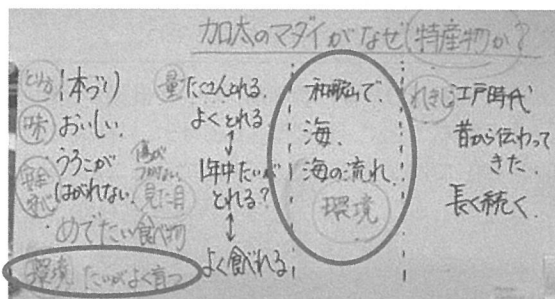 加太のマダイがなぜ特産物か?
とり方 1本づり
味 おいしい.
うろこが
はがれない.
傷が
つかない.
見た目
・めでたい食べ物
環境 たいがよく育つ
量 たくさんとれる.
よくとれる
1年中たいが
とれる?
よく食べれる
和歌山で.
海.
海の流れ.
環境
れきし 江戸時代
昔から伝わって
きた.
長く続く.